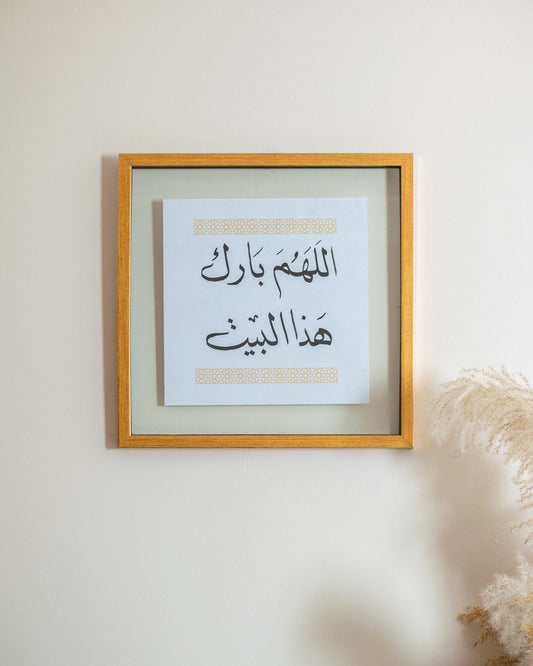 اللَهُمَ بَارك
هَذا البيت